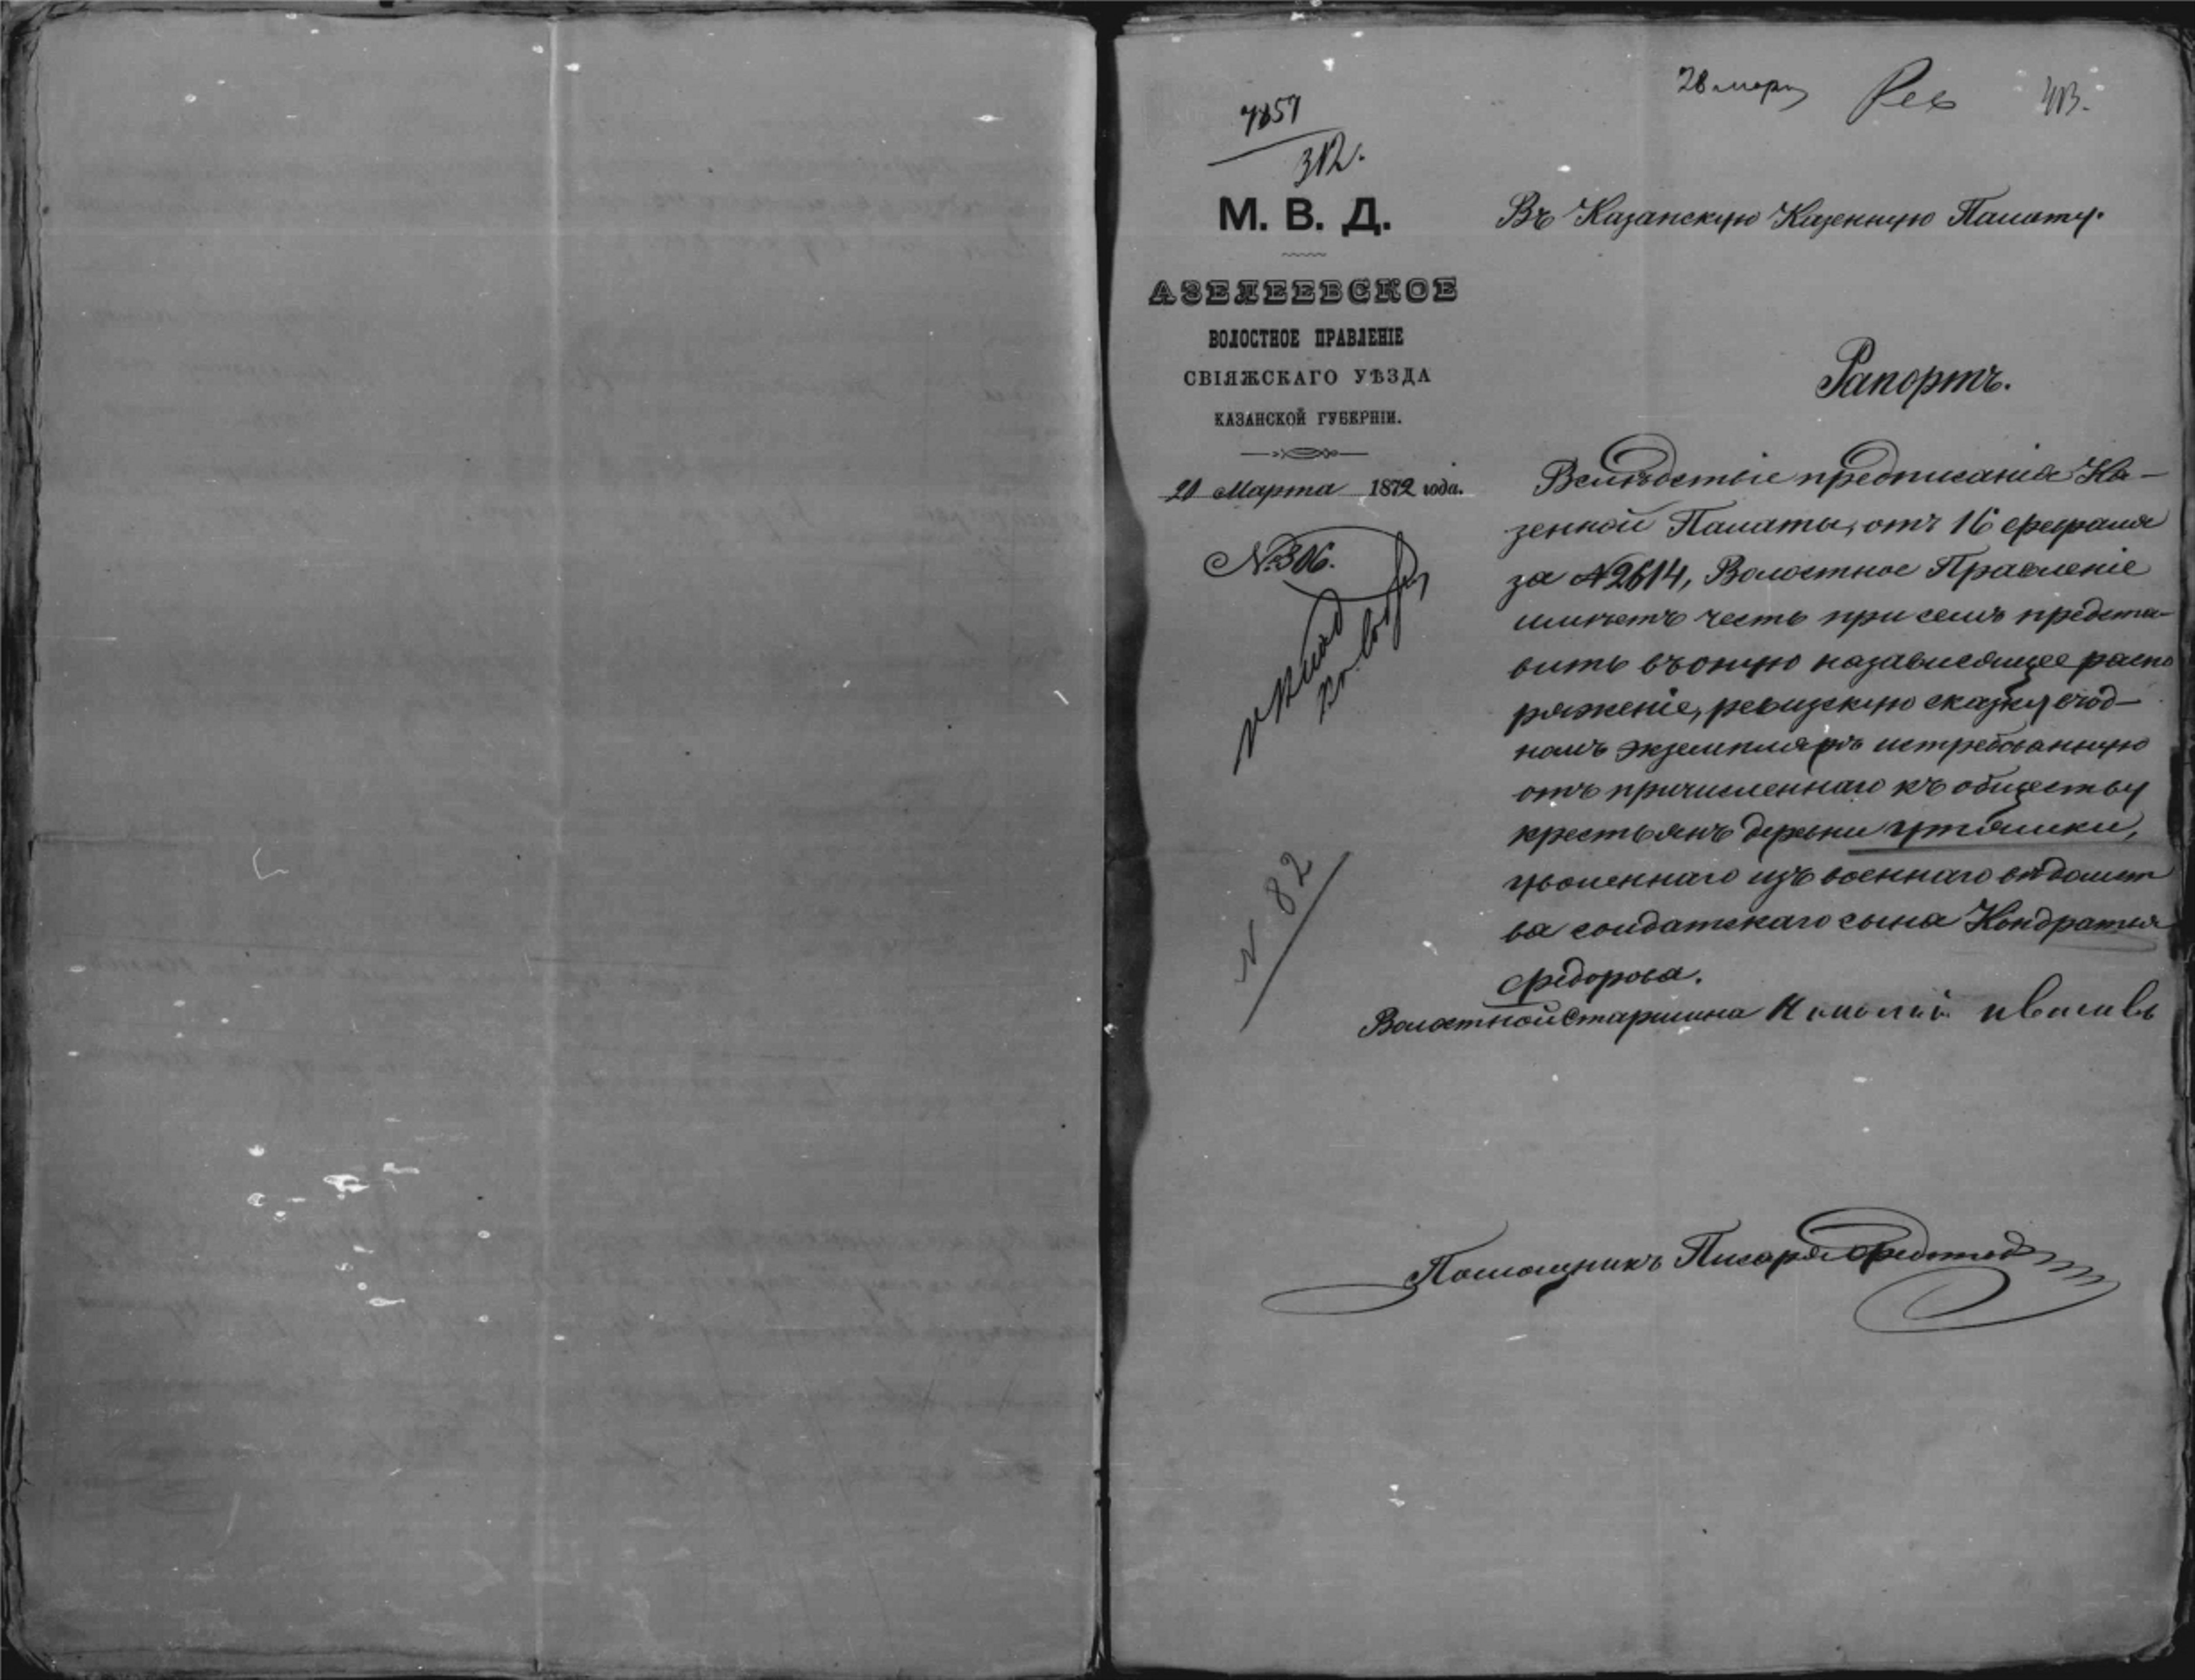 28 марта Рев 413.
7857
312.
М. В. Д.
АЗЕЛЕЕВСКОЕ
ВОЛОСТНОЕ ПРАВЛЕНІЕ
СВІЯЖСКАГО УѢЗДА
КАЗАНСКОЙ ГУБЕРНІИ.
20 Марта 1872 года.
№ 306.
№ 82
Въ Казанскую Казенную Палату.
Рапортъ.
Вслѣдствіе предписанія Ка-
зенной Палаты, отъ 16 февраля
за №2614, Волостное Правленіе
имѣетъ честь при семъ предста-
вить въ оную назависящее распо
ряженіе, ревизскую сказку въ од-
номъ экземплярѣ истребованную
отъ причисленнаго къ обществу
крестьянъ деревни Утяшки,
уволеннаго изъ военнаго вѣдомст
ва солдатскаго сына Кондратья
Федорова.
Волостной Старшина
Помощникъ Писаря Федотов